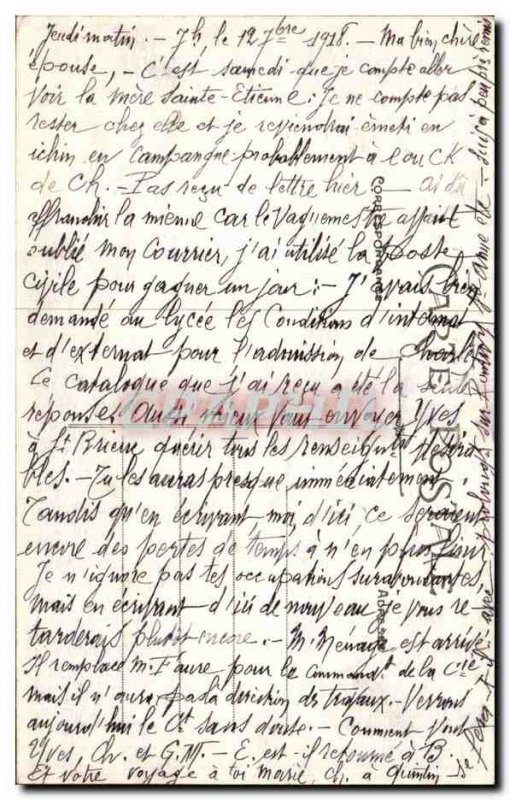 Jeudi matin. - 7h, le 12 7bre 1918. - Ma bien chère
épouse, - C'est samedi que je compte aller
voir la mère Sainte-Etienne. Je ne compte pas
rester chez elle et je reviendrai
en campagne probablement à
de Ch. - Pas reçu de lettre hier. - ai dû
affranchir la mienne car le Vaguemestre ayant
oublié mon Courrier, j'ai utilisé la poste
civile pour gagner un jour. - J'avais bien
demandé au lycée les Conditions d'internat
et d'externat pour l'admission de Charles
Le catalogue que j'ai reçu a été la seule
réponse. Aussi mieux vaut envoyer Yves
à St Brieuc quérir tous les renseignts désira
bles. - Tu les auras presque immédiatement.
Tandis qu'en écrivant moi d'ici ce seraient
encore des pertes de temps à n'en plus finir
Je n'ignore pas tes occupations surabondantes,
mais en écrivant d'ici de nouveau je vous re
tarderais plutôt encore. - M. Ménage est arrivé.
Il remplace M. Faure pour le commandt de la Cie
mais il n'aura pas la direction des travaux. - Verrons
aujourd'hui le Ct sans doute. - Comment vont
Yves, Ch. et G.M. - E. est-il retourné à B.
Et votre voyage à toi Marie, Ch. à Quintin
CORRESPONDANCE
CARTE POSTALE
Adresse